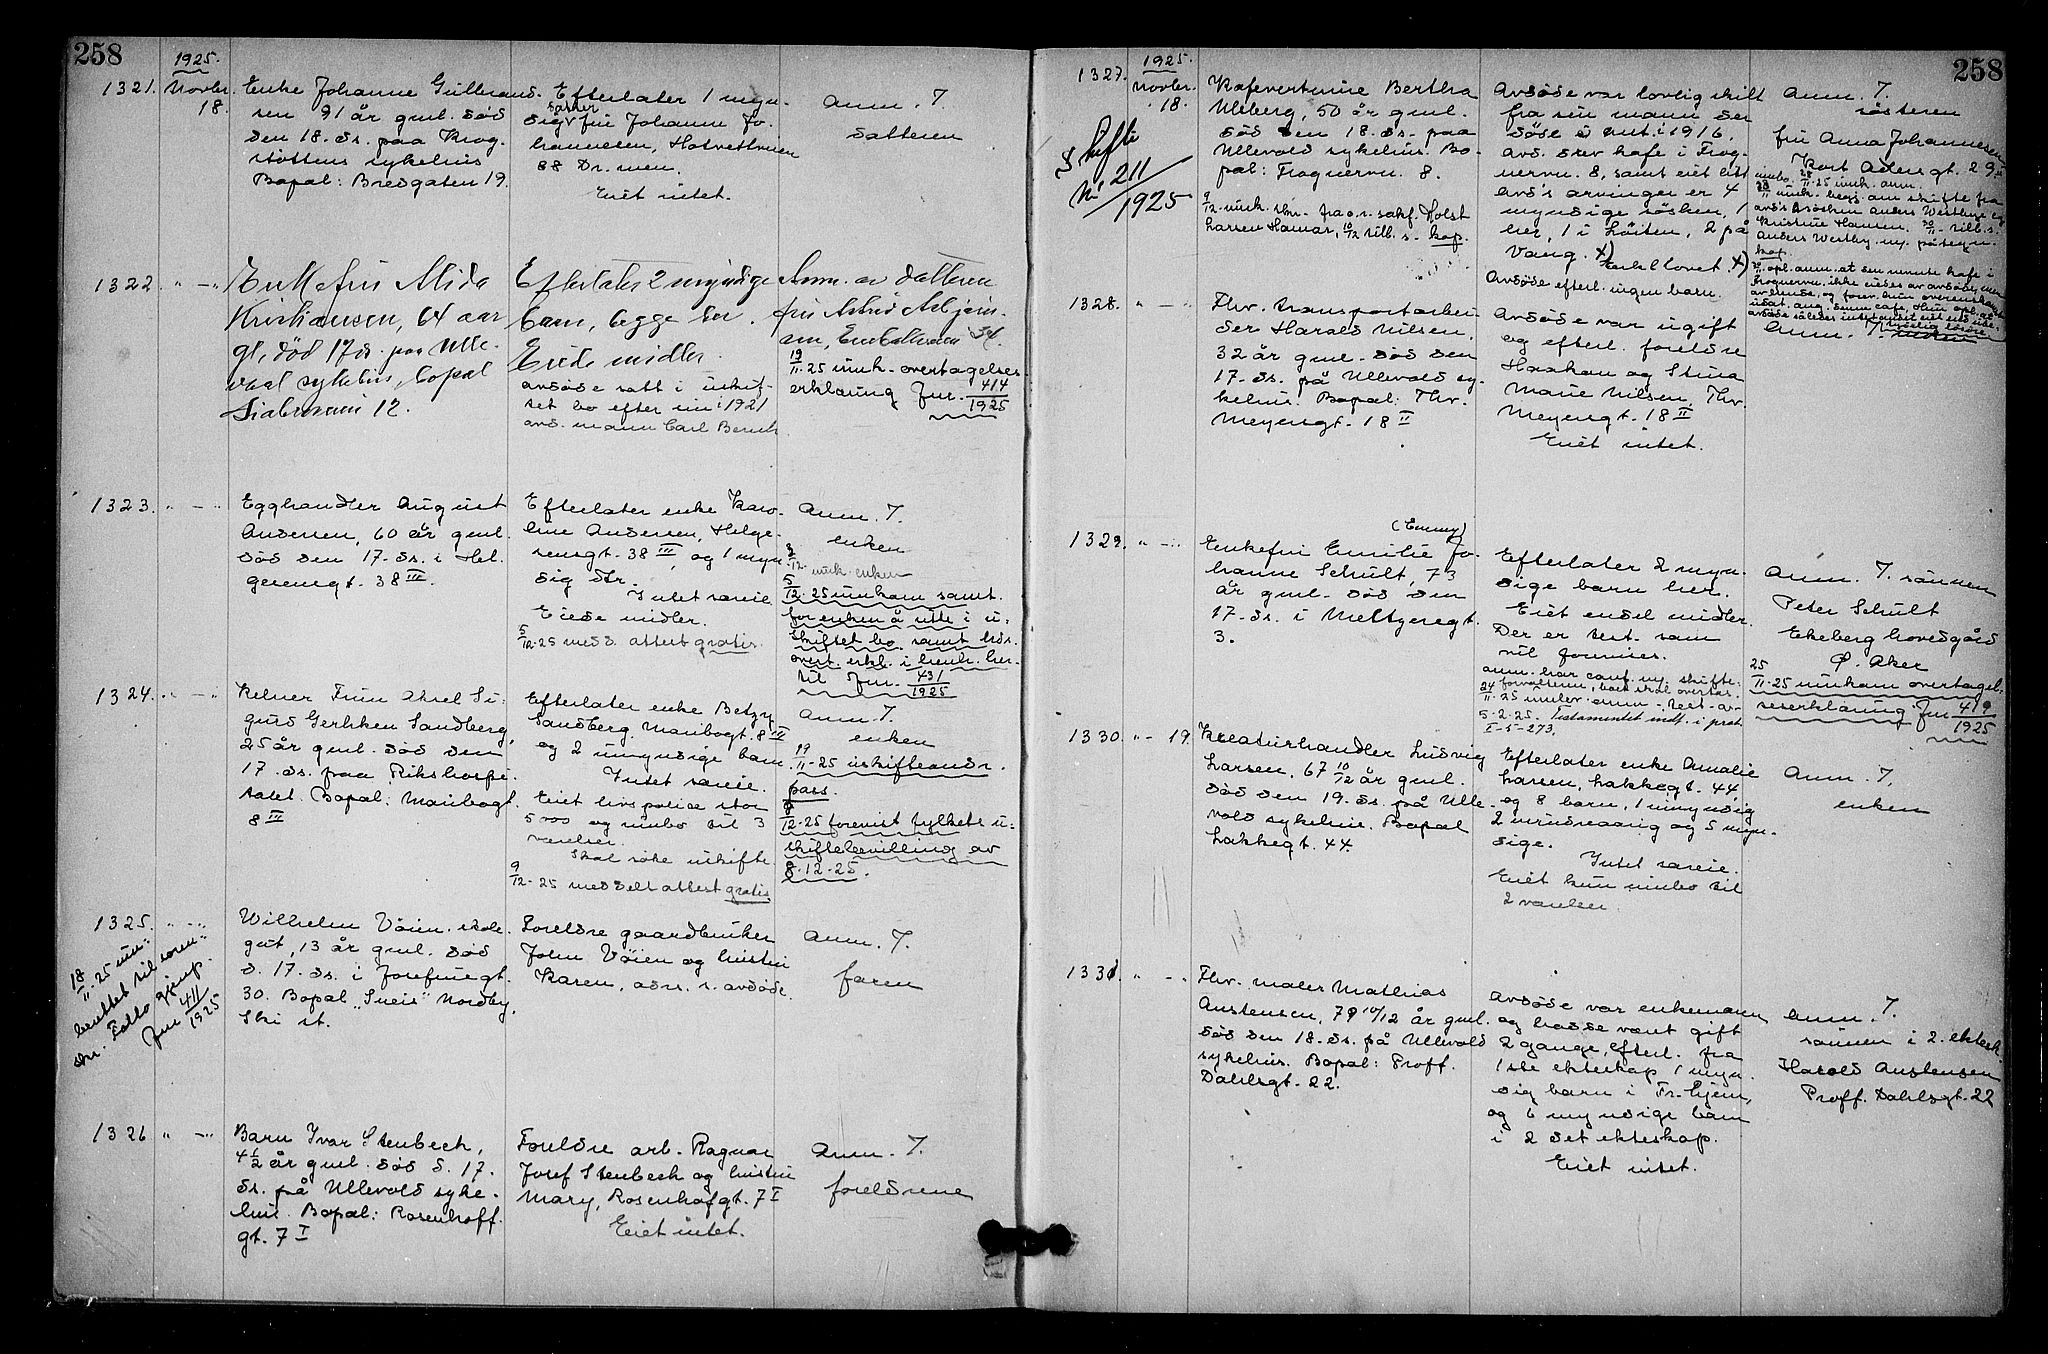 258
1925.
1321. Novbr. 18.
Enke Johanne Gulbrand-
sen 91 år gml. død
den 18. ds. paa Krog-
støttens sykehus
Bopal: Bredgaten 19.
Efterlater 1 myn-
dig datter fru Johanne Jo-
hannessen,
88 Dr. men.
Eiet intet.
Anm. T.
datteren
1322. " — "
Enkefru Alida
Kristiansen, 64 aar
gl., død 17 ds. paa Ulle-
vaal sykehus, bopal
12.
Efterlater 2 myndige
barn, begge her.
Eiede midler.
avdøde satt i uskif-
tet bo efter sin i 1921
avd. mann Carl
Anm. av datteren
fru Astrid
19/11-25 innk. overtagelses
erklæring Jnr. 414/1925
1323. " — "
Egghandler August
Andersen, 60 år gml.
død den 17. ds. i Hel-
gesensgt. 38 III.
Efterlater enke Karo-
line Andersen, Helge-
sensgt. 38 III, og 1 myn-
dig dtr.
Intet særeie.
Eiede midler.
5/12-25 medd. attest gratis.
Anm. T.
enken
3/12 innk. enken
5/12-25 innkom samt.
for enken å sitte i u-
skiftet bo samt
overt. erkl. i henh. her-
til Jnr. 431/1925
1324. " — "
Kelner Finn Aksel Si-
gurd Gerhken Sandberg,
25 år gml. død den
17. ds. paa Rikshospi-
talet. Bopal: Maribogt.
8 III
Efterlater enke Betzy
Sandberg, Maribogt. 8 III
og 2 umyndige barn.
Intet særeie.
Eiet livspolice stor
500 og innbo til 3
værelser.
Skal søke uskifte.
9/12-25 meddelt attest gratis
Anm. T.
enken
19/11-25 uskifteandr.
pass.
9/12-25 forevist fylkets u-
skiftebevilling av
8-12-25.
1325. " — "
18/11-25 inn-
berettet til soren-
skr. Follo
Jnr 411/1925
Wilhelm Vöien, skole-
gut, 13 år gml. død
d. 17. ds. i Josefinegt.
30. Bopal "Sneis" Nordby,
Ski st.
Foreldre gaardbruker
John Vöien og hustru
Karen, adr. s. avdøde.
Anm. T.
faren
1326 " — "
Barn Ivar Stenbech,
4 1/2 år gml. død d. 17.
ds. på Ullevold syke-
hus. Bopal: Rosenhoff-
gt. 7 I
Foreldre arb. Ragnar
Josef Stenbech og hustru
Mary, Rosenhofgt. 7 I
Eiet intet.
Anm. T.
foreldrene
258
1925.
1327. Novbr. 18.
Skifte
Nr 211/1925
Kafevertinne Bertha
Uleberg, 50 år gml.
død den 18. ds. paa
Ullevold sykehus. Bo-
pal: Frognervn. 8.
9/12 innk. skr. fra o.r. sakf. Holst
Larsen Hamar, 10/12 tilb. s. kop.
Avdøde var lovlig skilt
fra sin mann der
døde i 1916.
Avd. drev kafe i Frog-
nervn. 8, samt eiet litt
avd's arvinger er 4
myndige søsken, 1
her, 1 i Löiten, 2 på
Vang. x)
Avdøde efterl. ingen barn.
Anm. T.
søsteren
fru Anna Johannesen
Kort Adelersgt. 29
28/11-25 innk. anm.
innk. begj. om skifte fra
avd's søsken Anders Westbye og
Kristine Hansen. 30/11 tilb. s.
Anders Westby m. påtegn.
kop.
1328. " — "
Fhv. transportarbei-
der Harald Nilsen,
32 år gml. død den
17. ds. på Ullevold sy-
kehus. Bopal: Thv.
Meyersgt. 18 II
Avdøde var ugift
og efterl. foreldre
Haakon og Stina
Marie Nilsen, Thv.
Meyersgt. 18 II
Eiet intet.
Anm. T.
1329. " — "
(Emmy)
Enkefru Emilie Jo-
hanne Schult, 73
år gml. død den
17. ds. i Meltzersgt.
3.
Efterlater 2 myn-
dige barn her.
Eiet endel midler.
Der er test. som
vil forevises.
anm. har conf. m. skifte-
forvalteren, boet skal overtas.
24/11-25 innlev. anm. test. av
5-2-25. Testamentet indf. i prot.
I-5-273.
Anm. T. sönnen
Peter Schult
Ekeberg hovedgård
Ø. Aker
25/11-25 innkom overtagel-
seserklæring Jnr 419/1925
1330. " — 19.
Kreaturhandler Ludvig
Larsen, 67 10/12 år gml.
død den 19. ds. på Ulle-
vold sykehus. Bopal
Lakkegt. 44.
Efterlater enke Amalie
Larsen, Lakkegt. 44
og 8 barn, 1 umyndig
2 mindreaarig og 5 myn-
dige.
Intet særeie.
Eiet kun innbo til
2 værelser.
Anm. T.
enken
1331. " — "
Fhv. maler Mathias
Austensen, 79 10/12 år gml.
død den 18. ds. på Ullevold
sykehus. Bopal: Proff.
Dahlsgt. 22.
Avdøde var enkemann
og hadde vært gift
2 gange, efterl. fra
1ste ekteskap 1 myn-
dig barn i Fr.hjem,
og 6 myndige barn
i 2 det ekteskap.
Eiet intet.
Anm. T.
sönnen i 2. ektesk.
Harald Austensen
Proff. Dahlsgt. 22